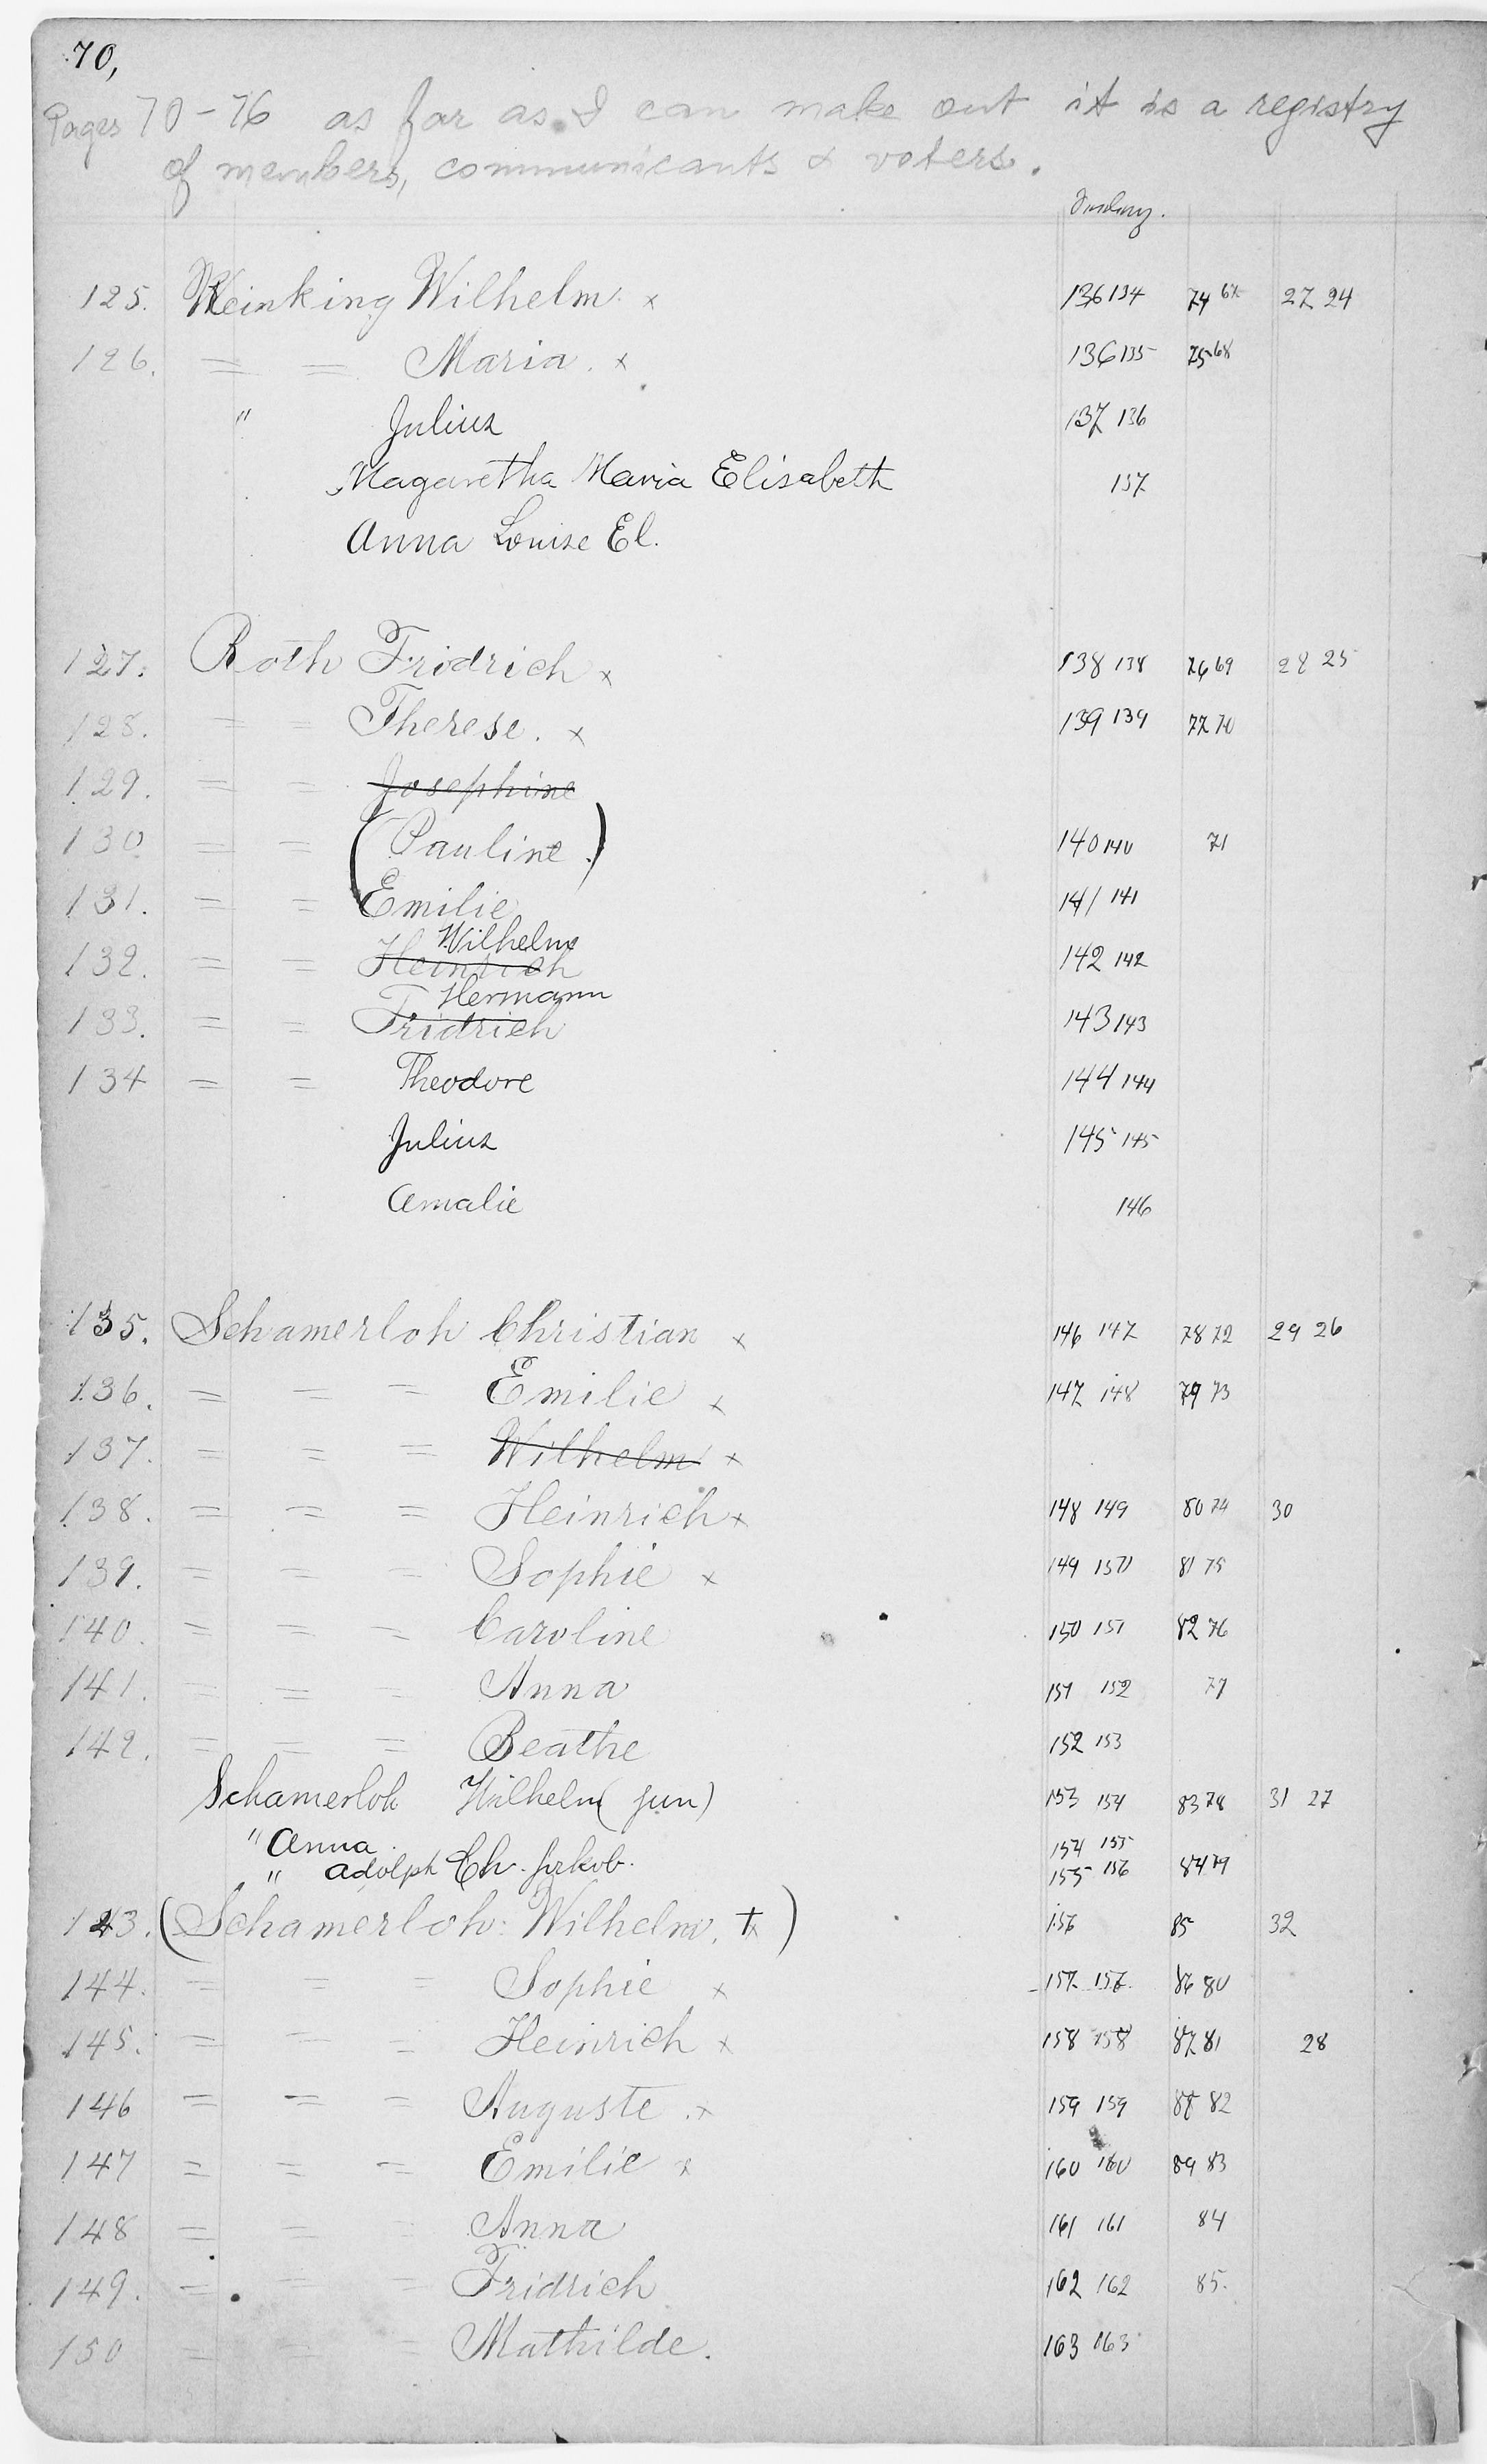 70,
Pages 70-76 as far as I can make out it is a registry
of members, communicants & voters.
125. Weinking Wilhelm. x 136 134 74 67 27 24
126. = = Maria. x 136 135 75 68
" Julius 137 136
Magaretha Maria Elisabeth 137
Anna Louise El.
127. Roth Fridrich x 138 138 76 69 28 25
128. = = Therese. x 139 139 77 70
129. = = Josephine
130 = = (Pauline.) 140 140 71
131. = = Emilie 141 141
Wilhelm
132. = = Heinrich 142 142
Hermann
133. = = Fridrich 143 143
134 = = Theodore 144 144
Julius 145 145
Amalie 146
135. Schamerloh Christian x 146 147 78 72 29 26
136. = = = Emilie x 147 148 79 73
137. = = = Wilhelm x
138. = = = Heinrich x 148 149 80 74 30
139. = = = Sophie x 149 150 81 75
140. = = = Caroline 150 151 82 76
141. = = = Anna 151 152 77
142. = = = Beathe 152 153
Schamerloh Wilhelm (jun) 153 154 83 78 31 27
" Anna 154 155
" Adolph Ch. Jakob. 155 156 84 79
143. (Schamerloh: Wilhelm. †) 156 85 32
144. = = = Sophie x 157 157 86 80
145. = = = Heinrich x 158 158 87 81 28
146 = = = Auguste. x 159 159 88 82
147 = = = Emilie x 160 160 89 83
148 = = = Anna 161 161 84
149. = = = Fridrich 162 162 85.
150 = = = Mathilde. 163 163